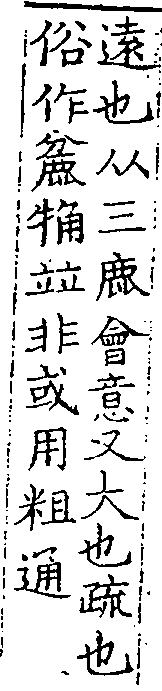 遠也从三鹿會意又大也疏也
俗作麄觕竝非或用粗通